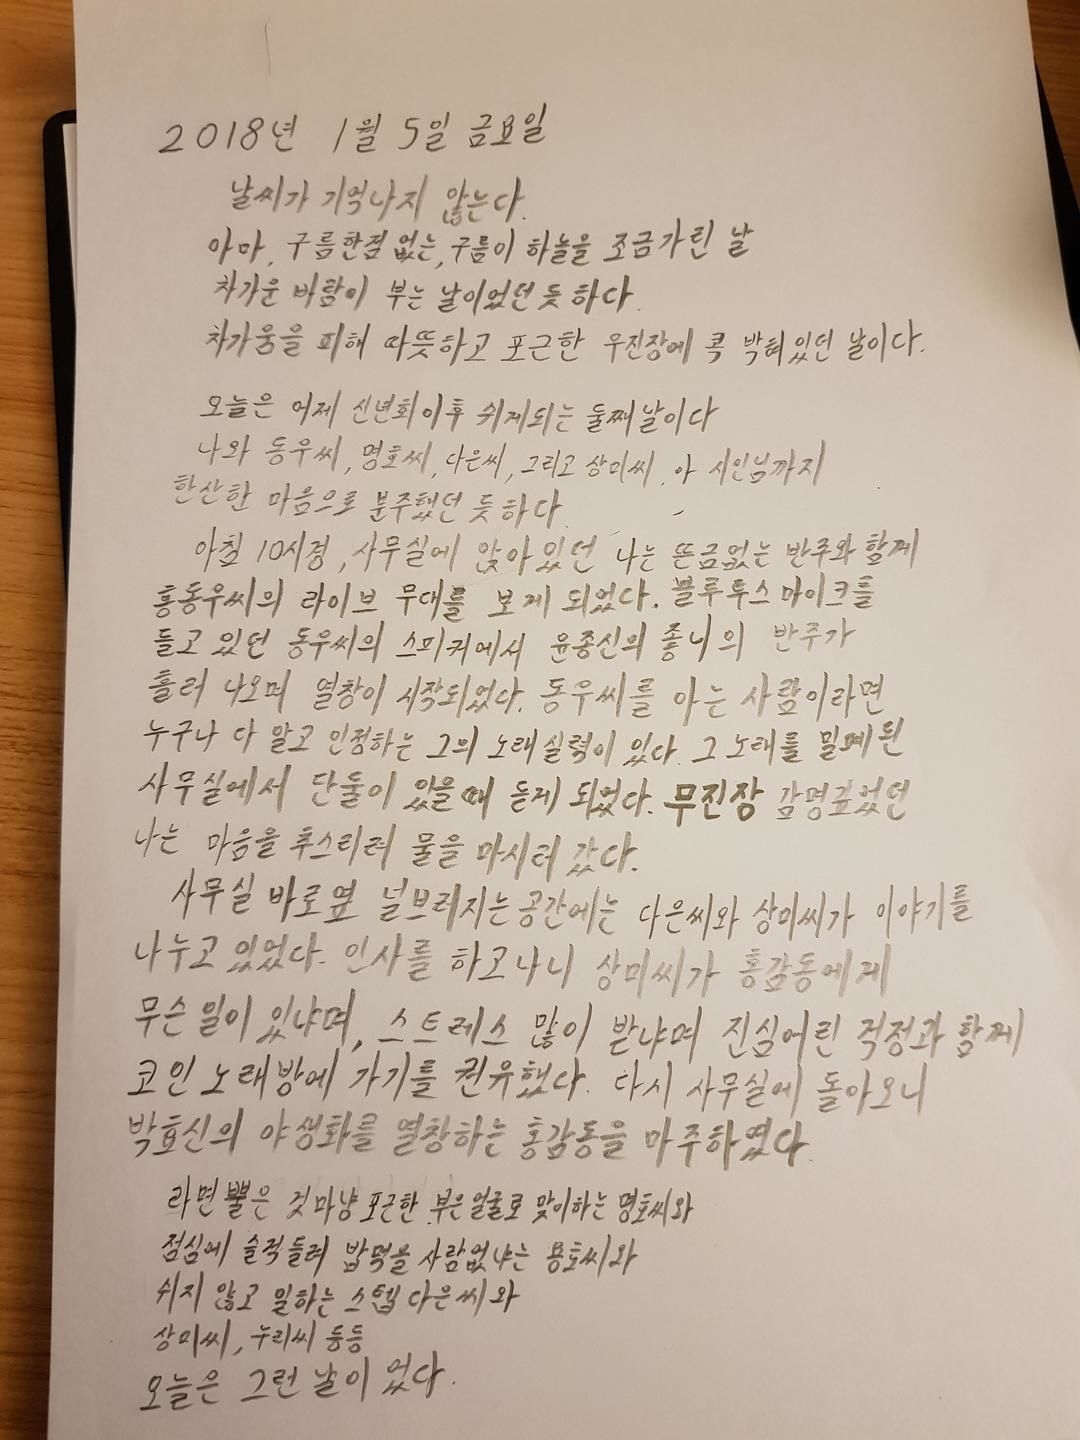 2018년 1월 5일 금요일
날씨가 기억나지 않는다.
아마, 구름한점 없는, 구름이 하늘을 조금가린 날
차가운 바람이 부는 날이었던 듯 하다.
차가움을 피해 따뜻하고 포근한 우진장에 콕 박혀있던 날이다.
오늘은 어제 신년회이후 쉬게되는 둘째날이다
나와 동우씨, 명호씨, 다은씨, 그리고 상미씨, 아 시인님까지
한산한 마음으로 분주했던 듯 하다.
아침 10시경, 사무실에 앉아있던 나는 뜬금없는 반주와 함께
홍동우씨의 라이브 무대를 보게 되었다. 블루투스 마이크를
들고 있던 동우씨의 스피커에서 윤종신의 좋니의 반주가
흘러 나오며 열창이 시작되었다. 동우씨를 아는 사람이라면
누구나 다 알고 인정하는 그의 노래실력이 있다. 그 노래를 밀폐된
사무실에서 단둘이 있을때 듣게 되었다. 무진장 감명깊었던
나는 마음을 추스리려 물을 마시러 갔다.
사무실 바로옆 널브러지는공간에는 다은씨와 상미씨가 이야기를
나누고 있었다. 인사를 하고나니 상미씨가 홍감동에게
무슨 일이 있냐며, 스트레스 많이 받냐며 진심어린 걱정과 함께
코인 노래방에 가기를 권유했다. 다시 사무실에 돌아오니
박효신의 야생화를 열창하는 홍감동을 마주하였다.
라면 뿔은 것 마냥 포근한 부은얼굴로 맞이하는 명호씨와
점심에 슬적들려 밥먹을 사람없냐는 용호씨와
쉬지 않고 일하는 스텝 다은씨와
상미씨, 누리씨 등등
오늘은 그런 날이 었다.